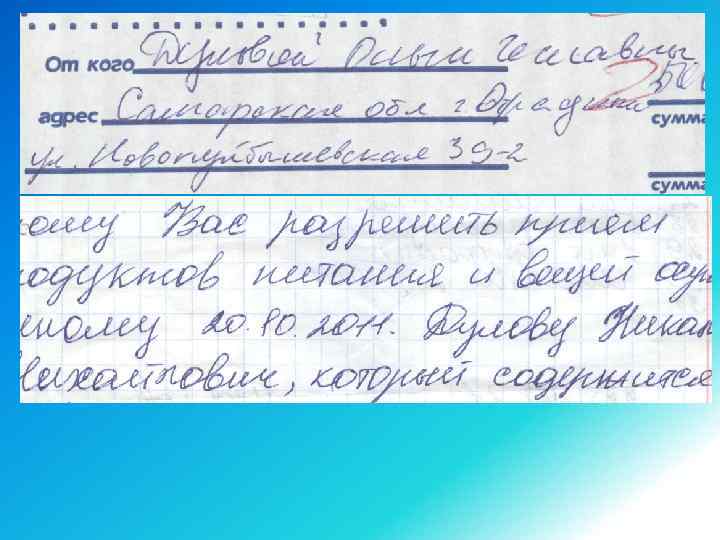 От кого Дуловой Ольги Чеславны
адрес Самарская обл г Отрадный 2500
сумма
ул. Новокуйбышевская 39-2
сумма
кому Вас разрешить прием
родуктов питания и вещей осуж
нному 20.10.2011. Дулову Никан
Михайлович, который содержится